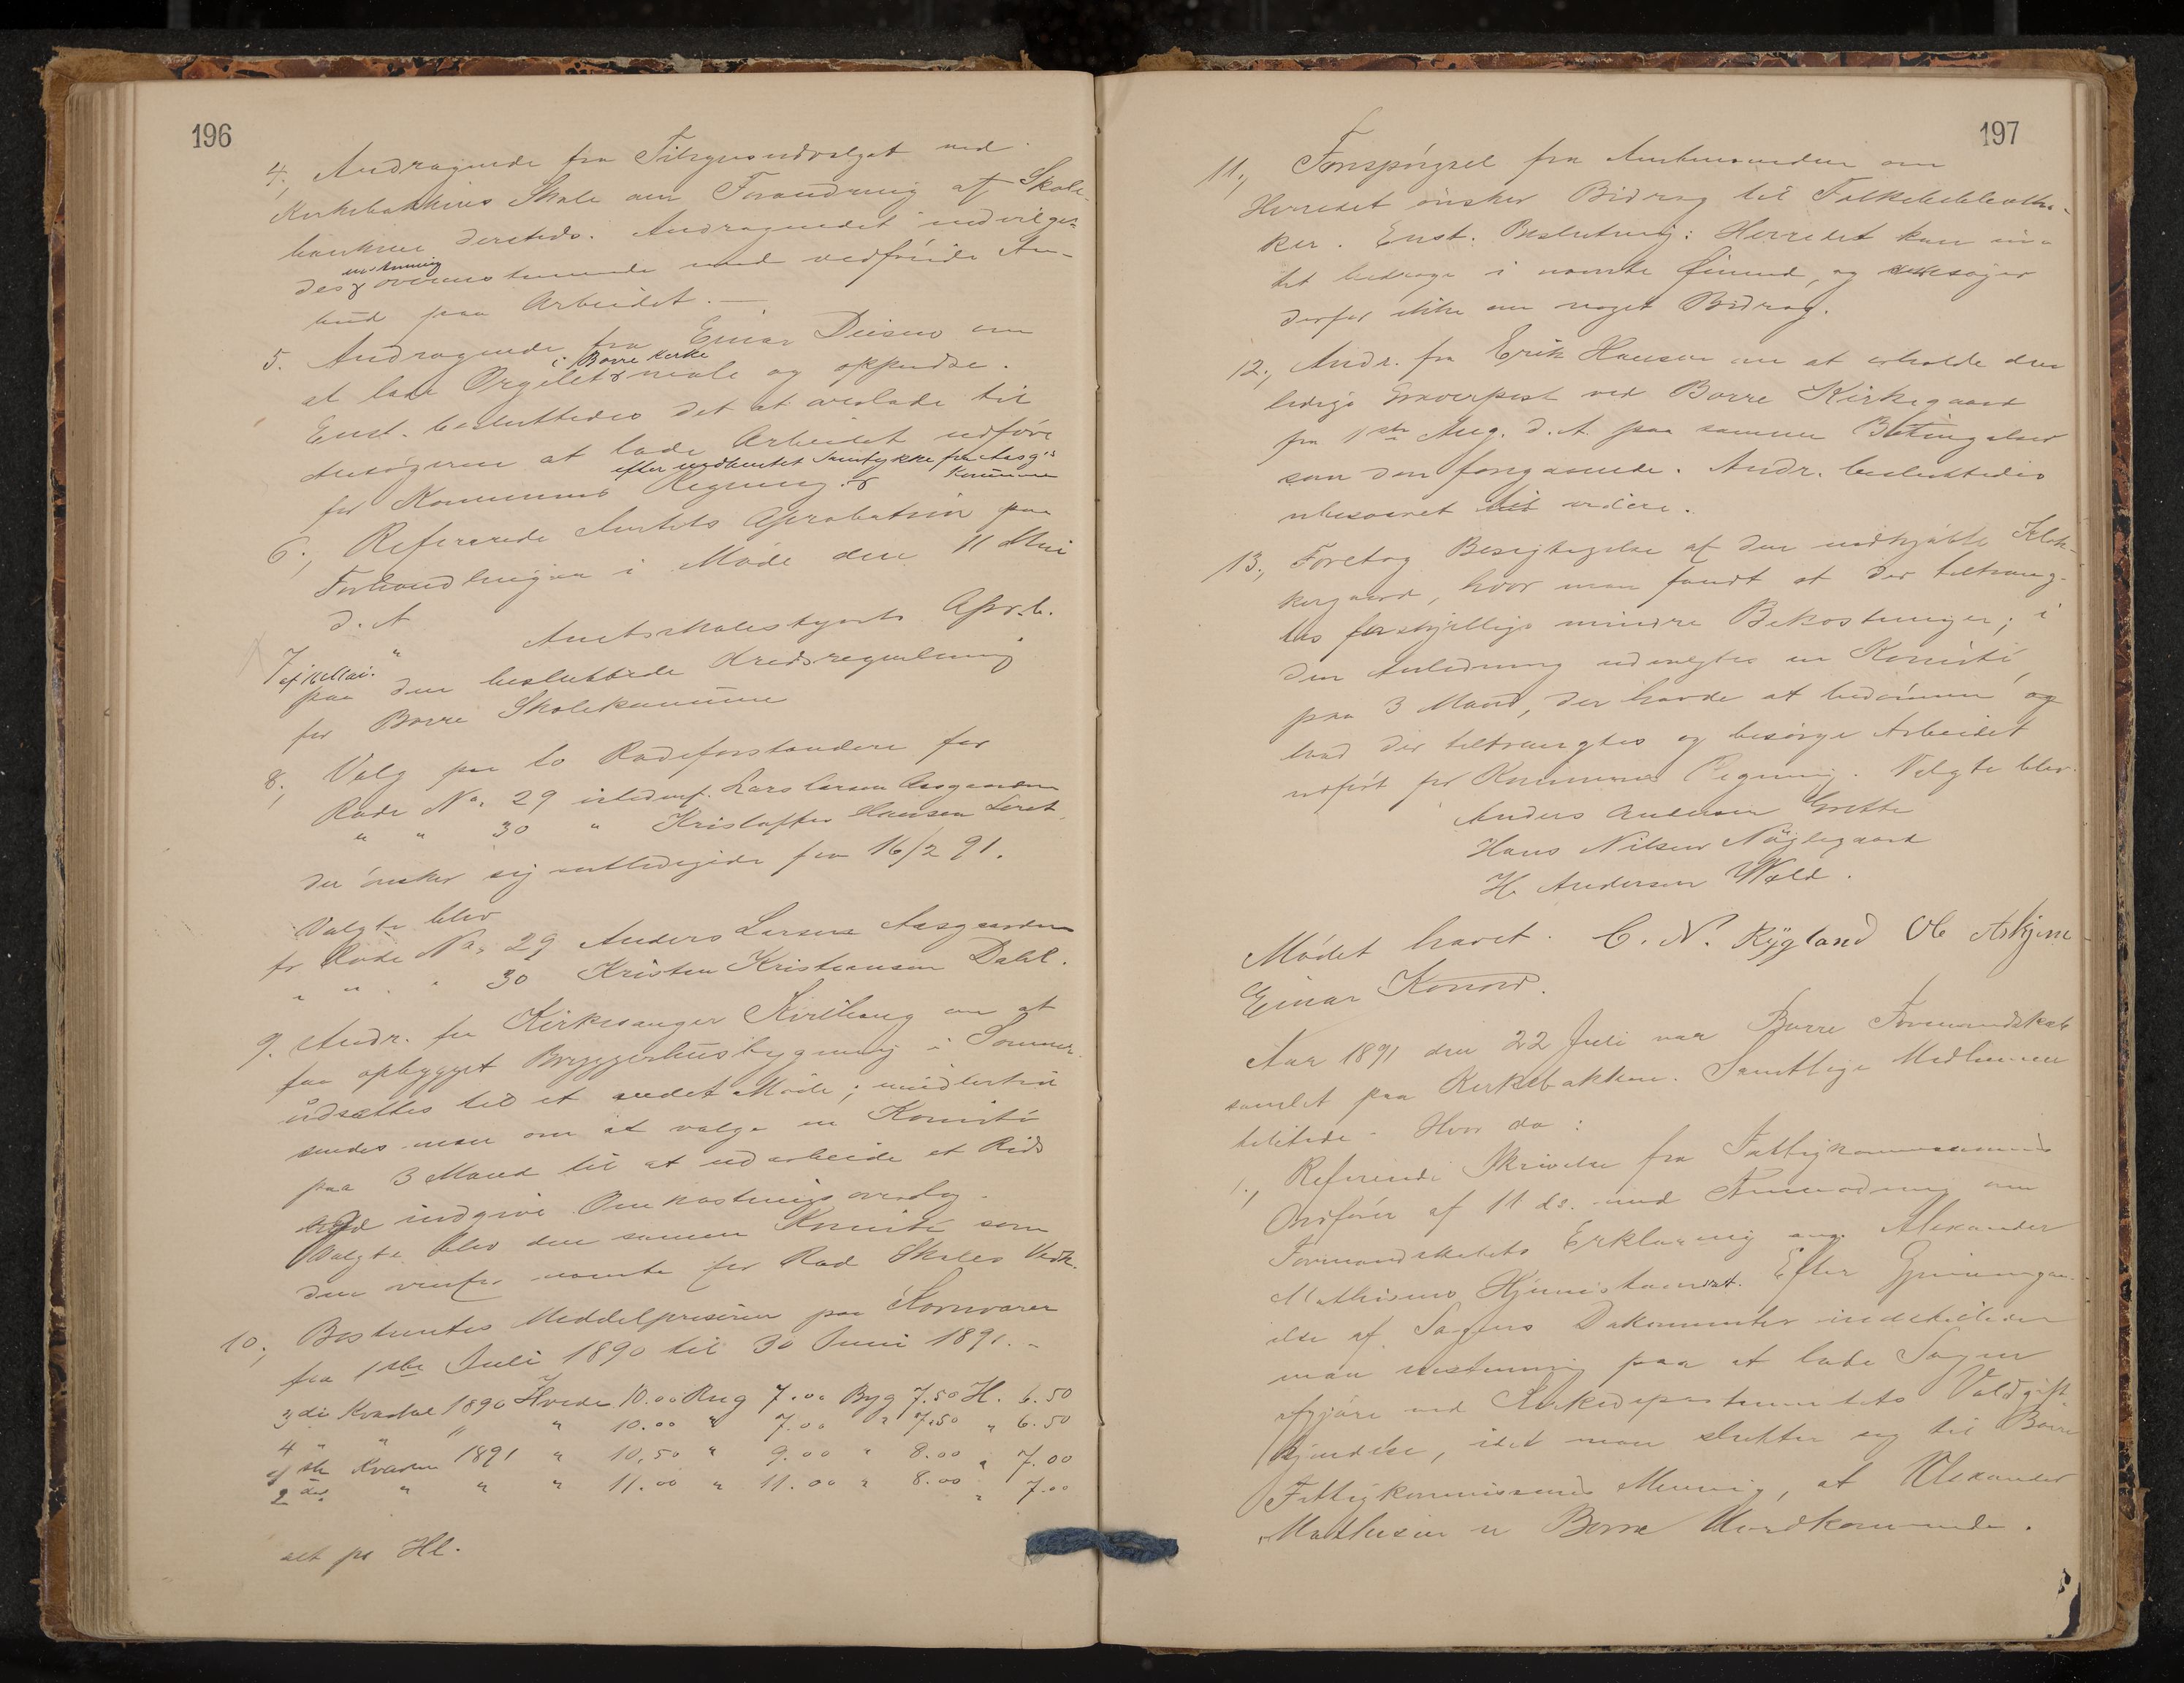 196
4., Andragende fra Tilsynsudvalget ved
Kirkebakkens Skole om Forandring af Skole-
bænkene dersteds. Andragendet indvilges
enstemmig
des overensstemmende med vedføiede An-
bud paa Arbeidet. —
5. Andragende fra Einar Diesen om
i Borre Kirke
at lade Orgelet male og oppudse.
Enst. besluttedes det at overlade til
Ansøgeren at lade Arbeidet udføre
efter indhentet Samtykke fra Aasg's
Kommune
for Kommunens Regning.
6., Refererede Amtets Aprobation paa
Forhandlingen i Møde den 11 Mai
d. A.
7 " Amtsskolestyrets Aprob.
af 16 Mai.
paa den besluttede Kredsregulering
for Borre Skolekommune
8., Valg paa to Rodeforstandere for
Rode No. 29 istedenf. Lars Larsen Aasgaarden
" " 30 " Kristoffer Hansen
der ønsker sig entlediget fra 16/2 91.
Valgte blev
for Rode No. 29 Anders Larsen Aasgaarden
" " " 30 Kristen Kristiansen Dahl.
9. Andr. fra Kirkesanger Kvilhaug om at
faa opbygget Bryggerhusbygning i Sommer
udsættes til et andet Møde; imidlertid
endes man om at vælge en Komité
paa 3 Mand til at udarbeide et Rids
indgive Omkostningsoverslag.
Valgte blev den samme Komité som
den ovenfor nævnte for Rød Skoles Vedk.
10., Bestemtes Middelpriserne paa Kornvarer
fra 1ste Juli 1890 til 30 Juni 1891. -
3die Kvartal 1890 Hvede 10.00 Rug 7.00 Byg 7.50 H. 6.50
4 " " " " 10.00 " 7.00 " 7.50 " 6.50
1ste Kvartal 1891 " 10.50 " 9.00 " 8.00 " 7.00
2det " " " 11.00 " 11.00 " 8.00 " 7.00
alt pr Hl.
197
11., Forespørgsel fra Amtmanden om
Herredet ønsker Bidrag til Folkebibliothe-
ker. Enst. Beslutning: Herredet kan in-
tet bidrage i nævnte Øiemed, og ansøger
derfor ikke om noget Bidrag.
12., Andr. fra Erik Hansen om at erholde den
ledige Graverpost ved Borre Kirkegaard
fra 1ste Aug. d. A. paa samme Betingelser
som den forrgaaende. Andr. besluttedes
ubesvaret indtil videre.
13., Foretog Besigtigelse af den indkjøbte Klok-
kergaard, hvor man fandt at der tiltræng-
tes forskjellige mindre Bekostninger; i
den Anledning udvalgtes en Komité
paa 3 Mand, der havde at bedømme
hvad der tiltrængtes og besørge Arbeidet
udført for Kommunens Regning. Valgte blev
Anders Andersen Grette
Hans Nilsen Nøglegaard
H. Andersen Wold.
Mødet hævet. C. N. Rygland Ole Askjem
Einar Konow.
Aar 1891 den 22 Juli var Borre Formandskab
samlet paa Kirkebakken. Samtlige Medlemmer
tilstede. Hvor da:
1., Refererede Skrivelse fra Fattigkommissionens
Ordfører af 11 ds. med Anmodning om
Formandskabets Erklæring ang. Alexander
Mathisens Hjemstavnsret. Efter Gjennemgaa-
else af Sagens Dokumenter indstilleder
man enstemmig paa at lade Sagen
afgjøre ved Kirkedepartementets Voldgift-
kjendelse, idet man slutter sig til Borre
Fattigkommissions Mening, at Alexander
Mathisen er Borre Uvedkommende.